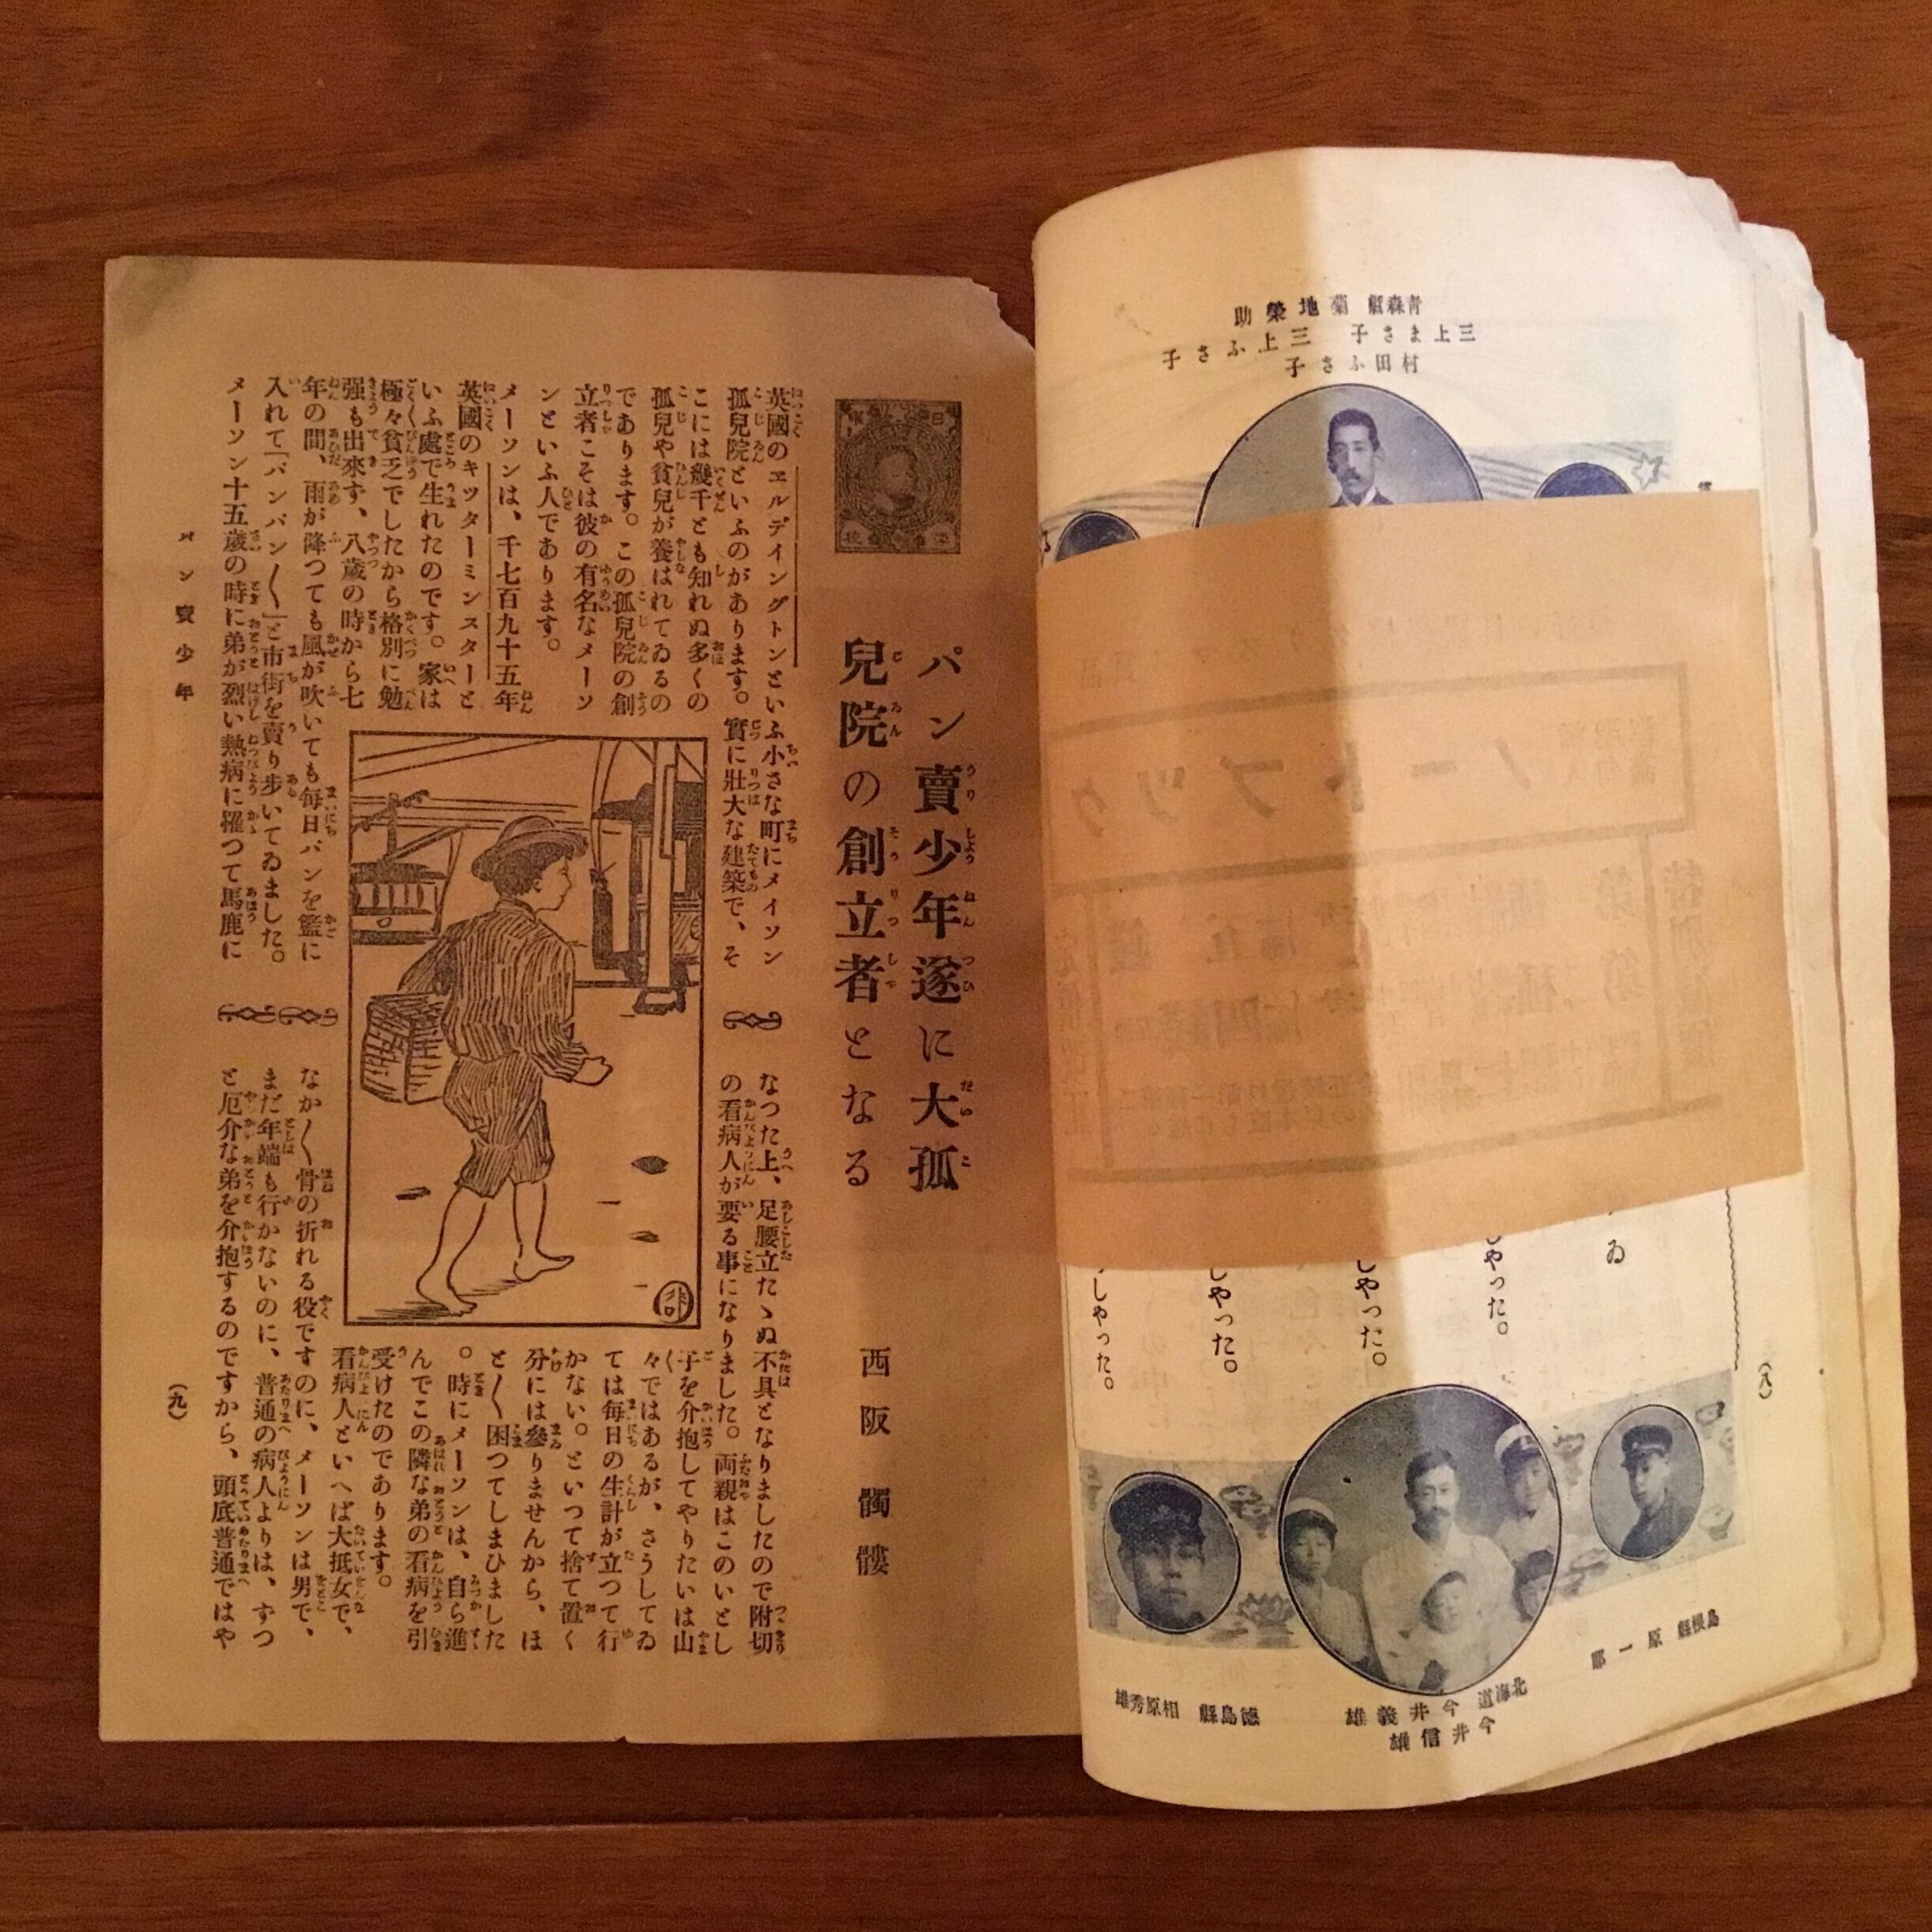 青森縣 菊地榮助
三上まさ子 三上ふさ子
村田ふさ子
ゐ
しやった。
しやった。
しやった。
しやった。
島根縣 原一郎
北海道 今井義雄
今井信雄
徳島縣 相原秀雄
(八)
パン賣少年遂に大孤
兒院の創立者となる
西阪髑髏
英國のヱルデイングトンといふ小さな町にメイソン
孤兒院といふのがあります。實に壯大な建築で、そ
こには幾千とも知れぬ多くの
孤兒や貧兒が養はれてゐるの
であります。この孤兒院の創
立者こそは彼の有名なメーソ
ンといふ人であります。
メーソンは、千七百九十五年
英國のキツターミンスターと
いふ處で生れたのです。家は
極々貧乏でしたから格別に勉
强も出來す、八歳の時から七
年の間、雨が降つても風が吹いても毎日パンを籃に
入れて「パンパン〱」と市街を賣り步いてゐました。
メーソン十五歳の時に弟が烈い熱病に罹つて馬鹿に
なつた上、足腰立たゝぬ不具となりましたので附切
の看病人が要る事になりました。両親はこのいとし
子を介抱してやりたいは山
々ではあるが、さうしてゐ
ては毎日の生計が立つて行
かない。といつて捨て置く
分には參りませんから、ほ
と〱困つてしまひました
。時にメーソンは、自ら進
んでこの隣な弟の看病を引
受けたのであります。
看病人といへば大抵女で、
なか〱骨の折れる役ですのに、メーソンは男で、
まだ年端も行かないのに、普通の病人よりは、ずつ
と厄介な弟を介抱するのですから、頭底普通ではや
パン賣少年
(九)